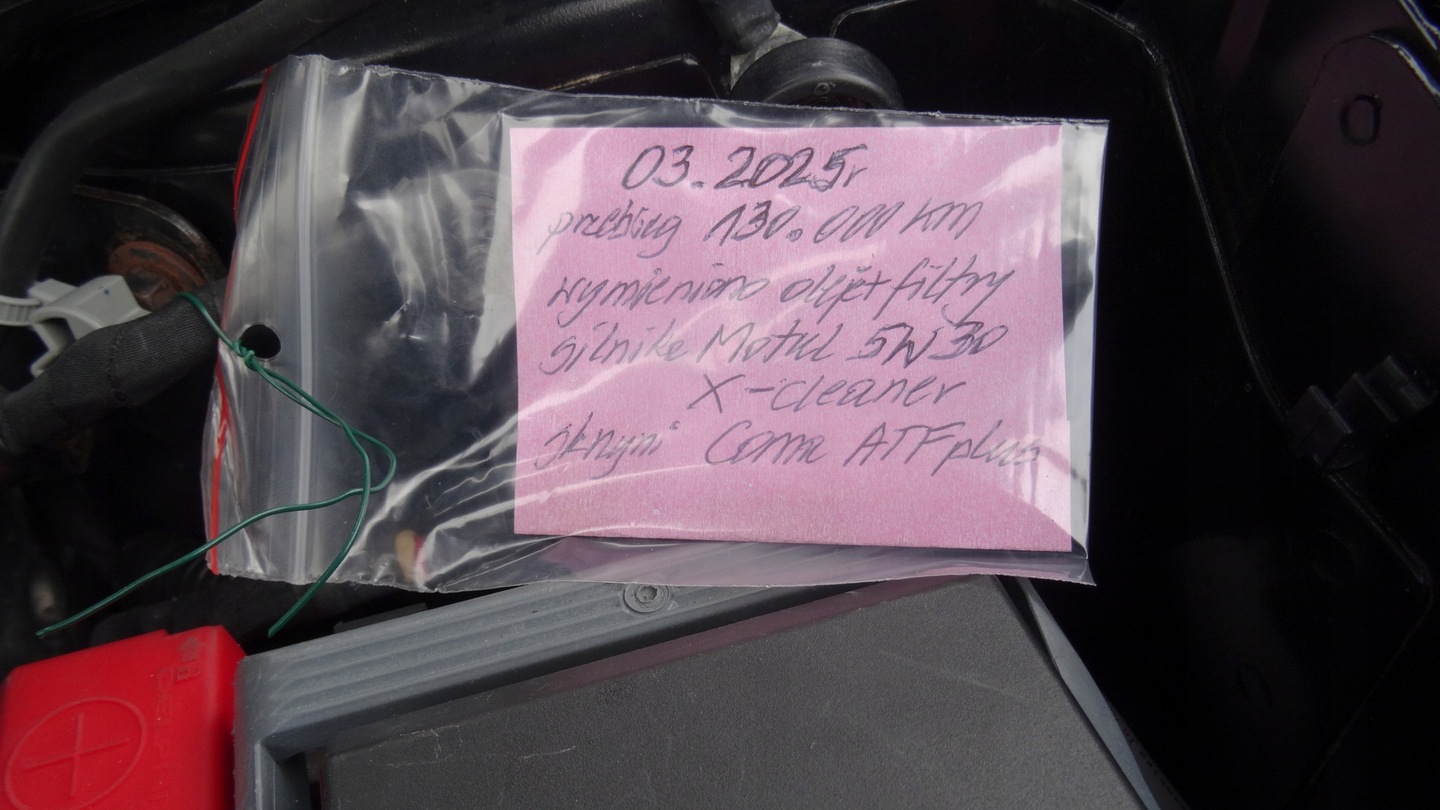 03.2025r
przebieg 130.000 km
wymieniono oleje+filtry
silnike Motul 5W30
X-cleaner
skrzyni Coma ATF plus